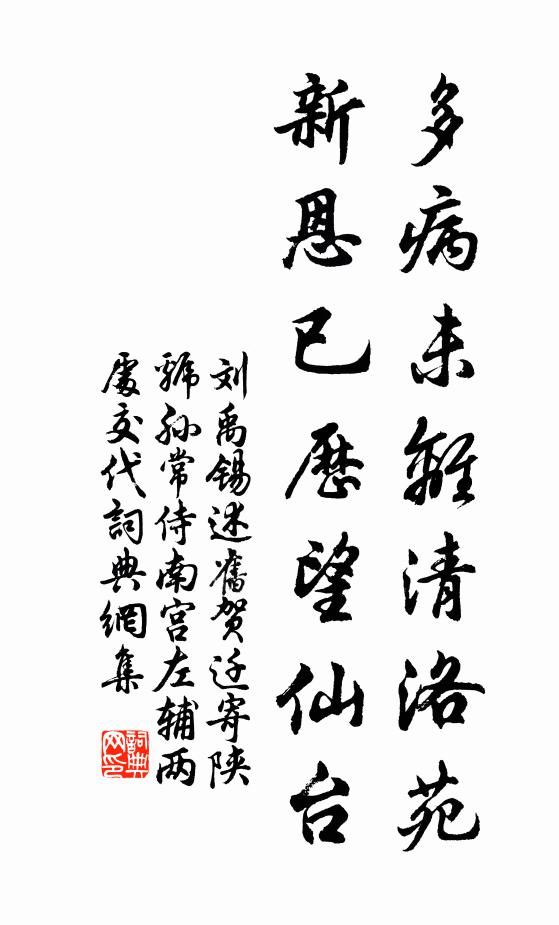 多病未離清洛苑
新恩已歷望仙台
刘禹锡述舊贺迁寄陕
虢孙常侍南宫左辅两
處交代詞典網集
詞典
网印